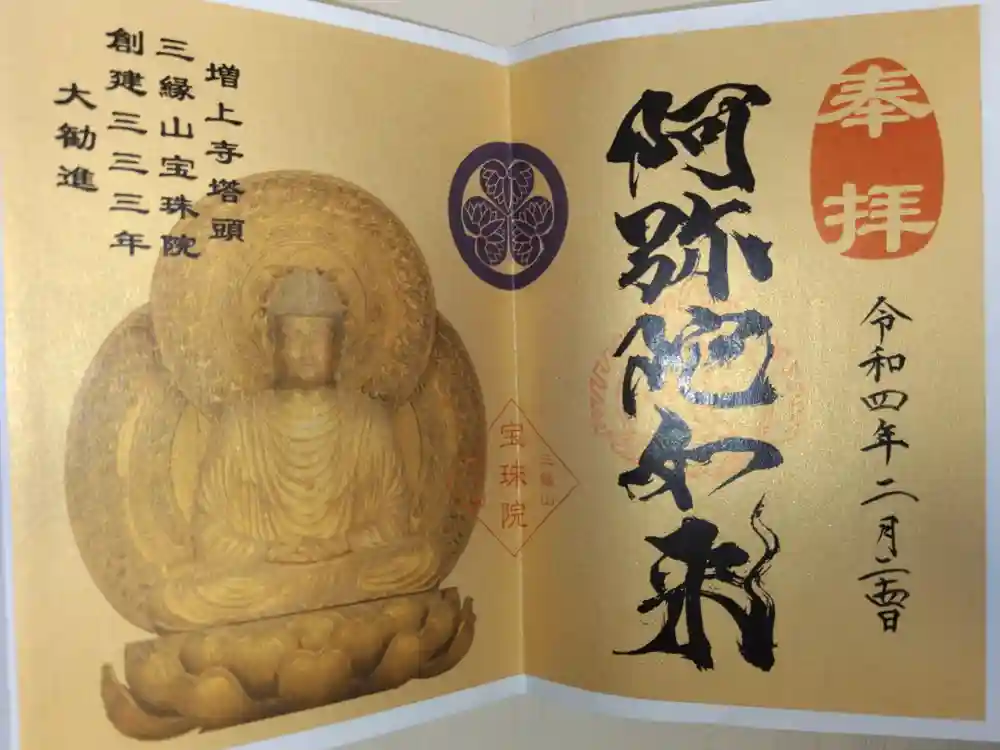 奉拝
令和四年二月二十四日
阿弥陀如来
三縁山
宝珠院
増上寺塔頭
三縁山宝珠院
創建三三三年
大勧進